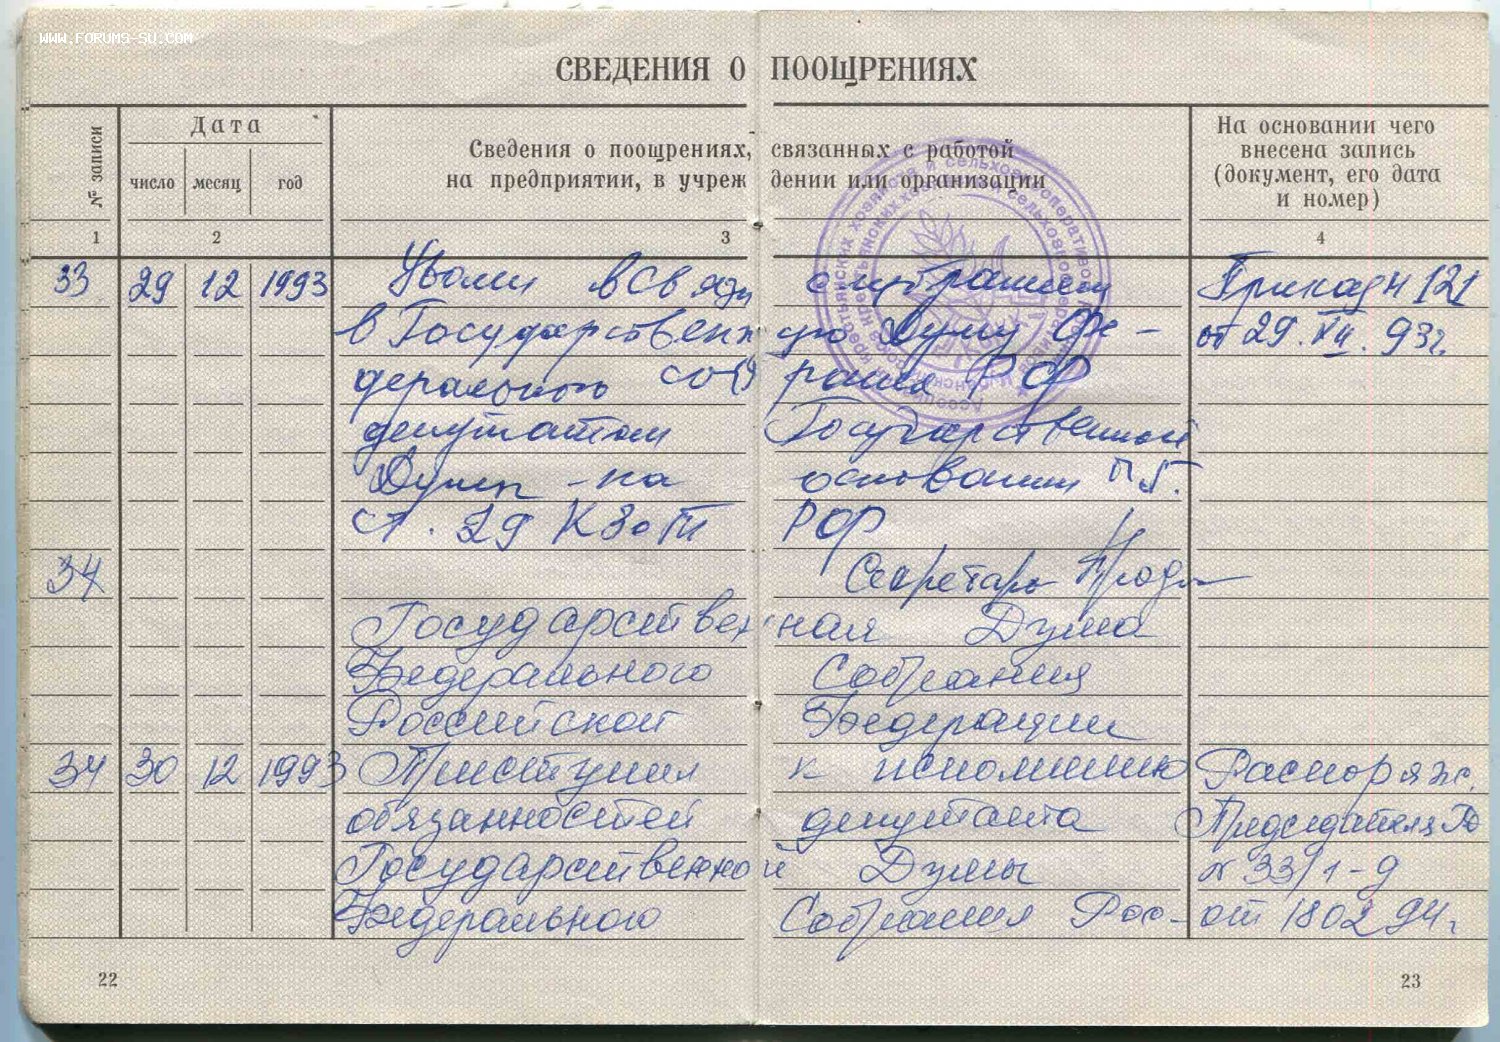 WWW.FORUMS-SU.COM
СВЕДЕНИЯ О ПООЩРЕНИЯХ
№ записи
Дата
число месяц год
Сведения о поощрениях, связанных с работой
на предприятии, в учреждении или организации
На основании чего
внесена запись
(документ, его дата
и номер)
1 2 3 4
33 29 12 1993 Уволен в связи с избранием Приказ н 121
в Государственную Думу Фе- от 29.XII.93г.
дерального собрания РФ
депутатом Государственной
Думы - на основании п 5.
ст. 29 КЗоТ РФ
34 Секретарь
Государственная Дума
Федерального Собрания
Российской Федерации
34 30 12 1993 Приступил к исполнению Распоряж.
обязанностей депутата Председателя ГД
Государственной Думы N 33/1-д
Федерального Собрания Рос- от 18 02 94г
22 23